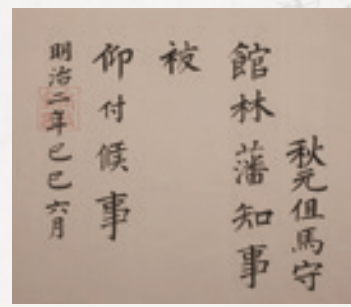 秋元但馬守
館林藩知事
被
仰付候事
明治二年己巳六月